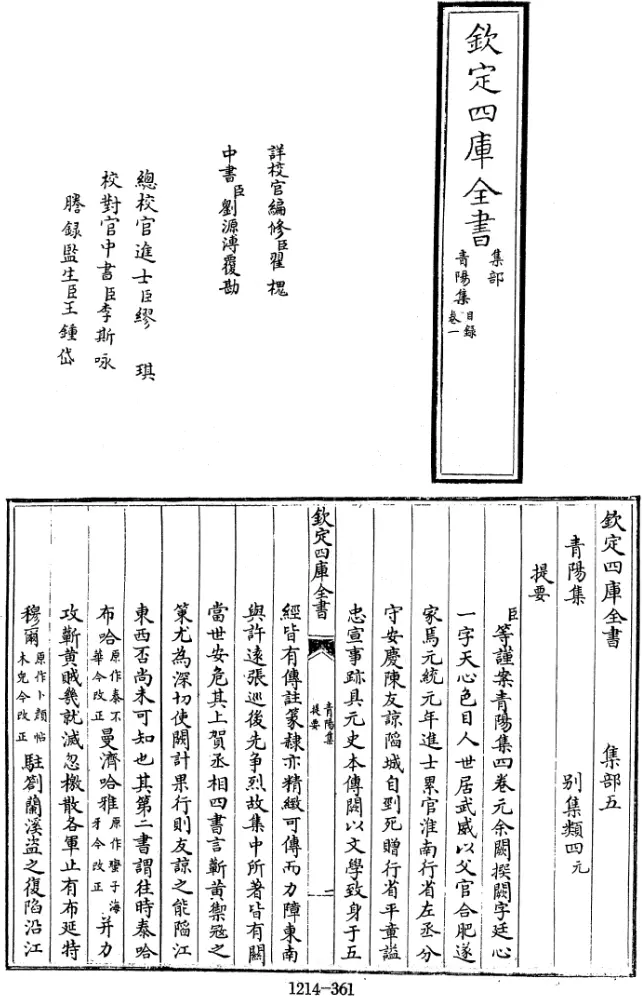 欽定四庫全書
集部
青陽集
目録
卷一
詳校官編修臣翟槐
中書臣劉源溥覆勘
總校官進士臣繆琪
校對官中書臣李斯咏
謄録監生臣王鍾岱
欽定四庫全書 集部五
青陽集 别集類四元
提要
臣等謹案青陽集四卷元余闕撰闕字廷心
一字天心色目人世居武威以父官合肥遂
家焉元統元年進士累官淮南行省左丞分
守安慶陳友諒陷城自剄死贈行省平章謚
忠宣事跡具元史本傳闕以文學致身于五
欽定四庫全書 青陽集提要 一
經皆有傳註篆隸亦精緻可傳而力障東南
與許遠張巡後先争烈故集中所著皆有關
當世安危其上賀丞相四書言蘄黄禦冦之
策尤為深切使闕計果行則友諒之能陷江
東西否尚未可知也其第二書謂往時泰哈
布哈原作泰不華今改正曼濟哈雅原作蠻子海牙今改正并力
攻蘄黄賊幾就滅忽檄散各軍止有布延特
穆爾原作卜顔帖木兒今改正駐劄蘭溪盗之復陷沿江
1214-361